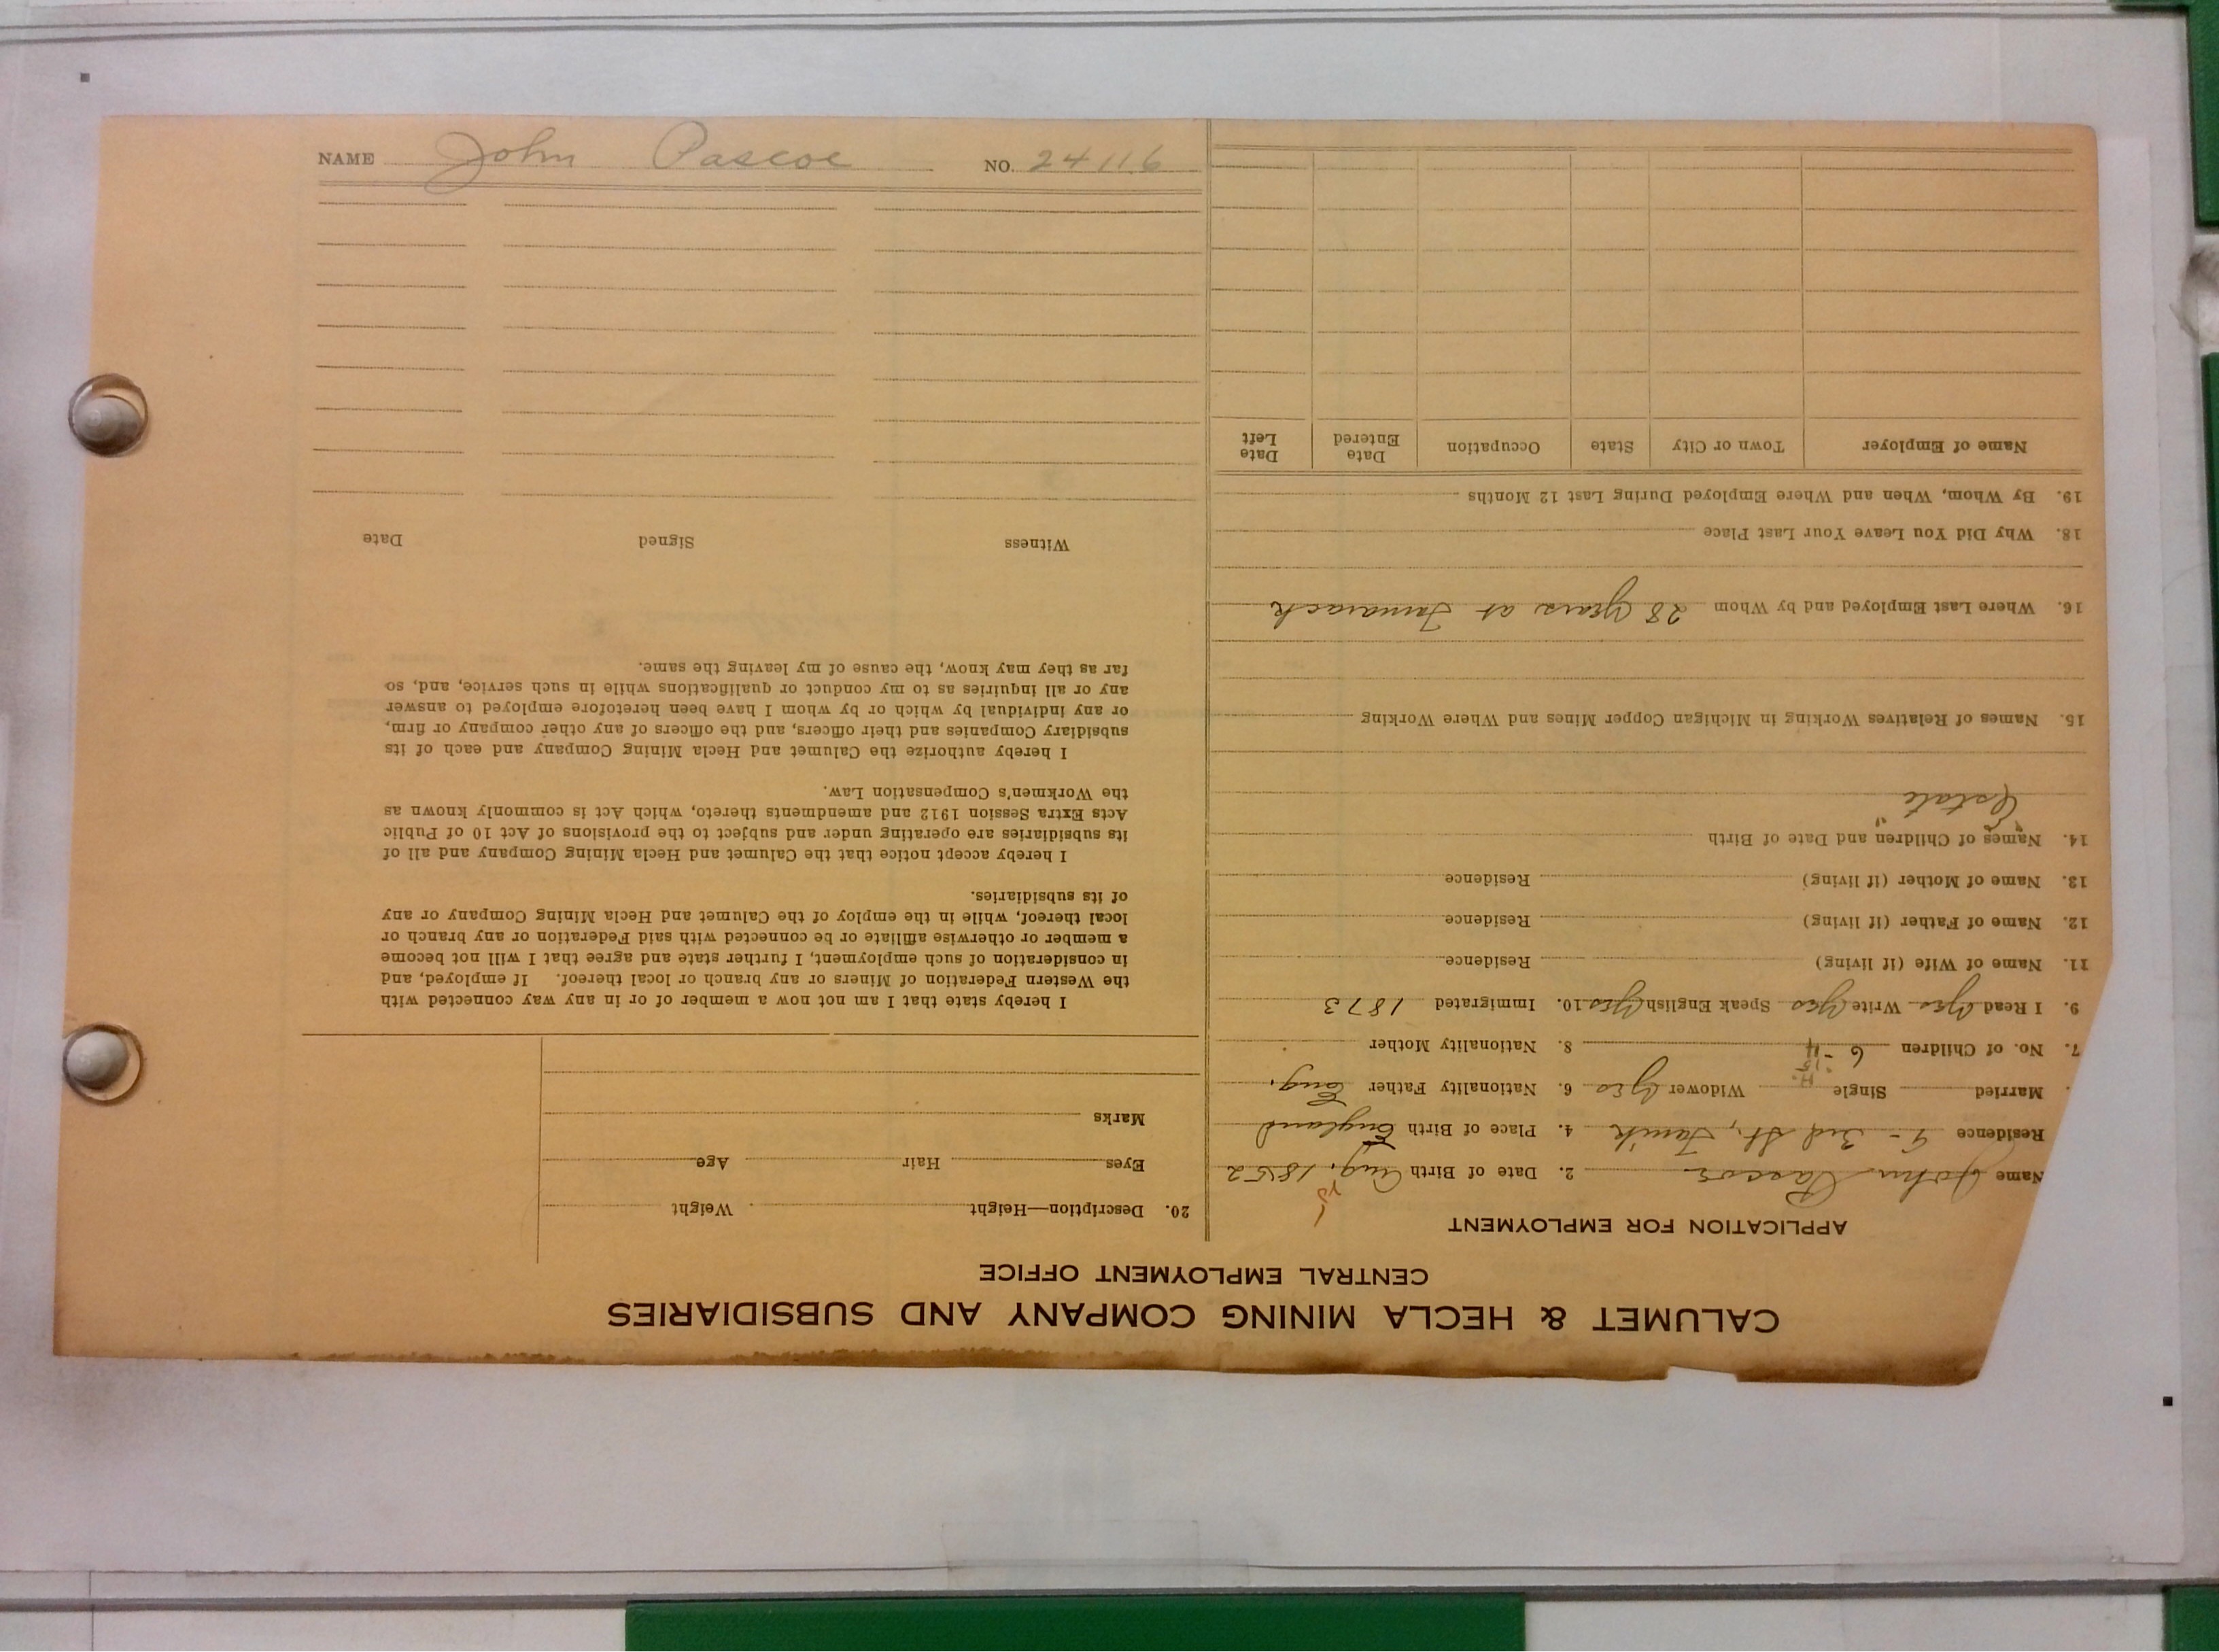 NAME John Pascoe NO. 24116
CALUMET & HECLA MINING COMPANY AND SUBSIDIARIES
CENTRAL EMPLOYMENT OFFICE
APPLICATION FOR EMPLOYMENT
Name John Pascoe 2. Date of Birth Aug. 1852
Residence 9 - 3rd St., Tam'k 4. Place of Birth England
Married Single Widower Yes 6. Nationality Father Eng.
7. No. of Children 6 - 8. Nationality Mother
9. I Read Yes Write Yes Speak English Yes 10. Immigrated 1873
11. Name of Wife (if living) Residence
12. Name of Father (if living) Residence
13. Name of Mother (if living) Residence
14. Names of Children and Date of Birth
15. Names of Relatives Working in Michigan Copper Mines and Where Working
16. Where Last Employed and by Whom 28 Years at Tamarack
18. Why Did You Leave Your Last Place
19. By Whom, When and Where Employed During Last 12 Months
Name of Employer Town or City State Occupation Date Entered Date Left
20. Description—Height Weight
Eyes Hair Age
Marks
I hereby state that I am not now a member of or in any way connected with
the Western Federation of Miners or any branch or local thereof. If employed, and
in consideration of such employment, I further state and agree that I will not become
a member or otherwise affiliate or be connected with said Federation or any branch or
local thereof, while in the employ of the Calumet and Hecla Mining Company or any
of its subsidiaries.
I hereby accept notice that the Calumet and Hecla Mining Company and all of
its subsidiaries are operating under and subject to the provisions of Act 10 of Public
Acts Extra Session 1912 and amendments thereto, which Act is commonly known as
the Workmen's Compensation Law.
I hereby authorize the Calumet and Hecla Mining Company and each of its
subsidiary Companies and their officers, and the officers of any other company or firm,
or any individual by which or by whom I have been heretofore employed to answer
any or all inquiries as to my conduct or qualifications while in such service, and, so
far as they may know, the cause of my leaving the same.
Witness Signed Date